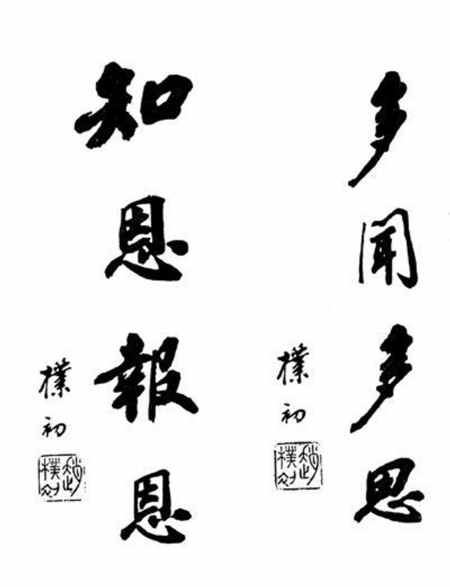 多聞多思
樸初
趙樸初
知恩報恩
樸初
趙樸初